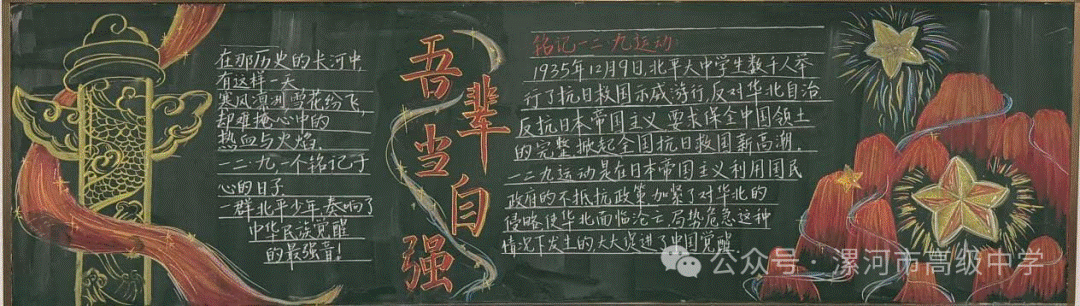 在那历史的长河中,
有这样一天
寒风凛冽,雪花纷飞,
却难掩心中的
热血与火焰.
一二·九一个铭记于
心的日子
一群北平少年奏响了
中华民族觉醒
的最强音!
吾辈当自强
铭记一二·九运动:
1935年12月9日,北平大中学生数千人举
行了抗日救国示威游行,反对华北自治
反抗日本帝国主义,要求保全中国领土
的完整掀起全国抗日救国新高潮.
一二九运动是在日本帝国主义利用国民
政府的不抵抗政策加紧了对华北的
侵略使华北面临沦亡局势危急这种
情况下发生的大大促进了中国觉醒
公众号·漯河市高级中学